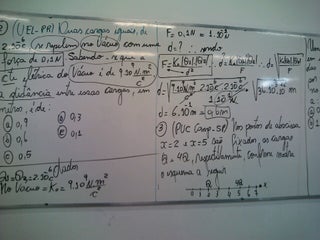 2) (UEL-PR) Duas cargas iguais de
2.10⁻⁶C se repelem no vácuo com uma
força de 0,1N. Sabendo-se que a
cte elétrica do vácuo é de 9.10⁹ N.m²/C²
a distância entre essas cargas, em
metros, é de:
a) 0,9
b) 0,6
c) 0,5
d) 0,3
e) 0,1
dados
Q1=Q2=2.10⁻⁶C
No vácuo = K0 = 9.10⁹ N.m²/C²
F = 0,1N = 1.10⁻¹N
d = ? , sendo
F = K0|Q1||Q2|/d²
d = 6.10⁻¹m = 0,6m
3) (PUC Camp-SP) Nos pontos de abscissa
x = 2 e x = 5 são fixadas as cargas
Q e 4Q, respectivamente, conforme mostra
o esquema a seguir
Q 4Q
0 1 2 3 4 5 6 x